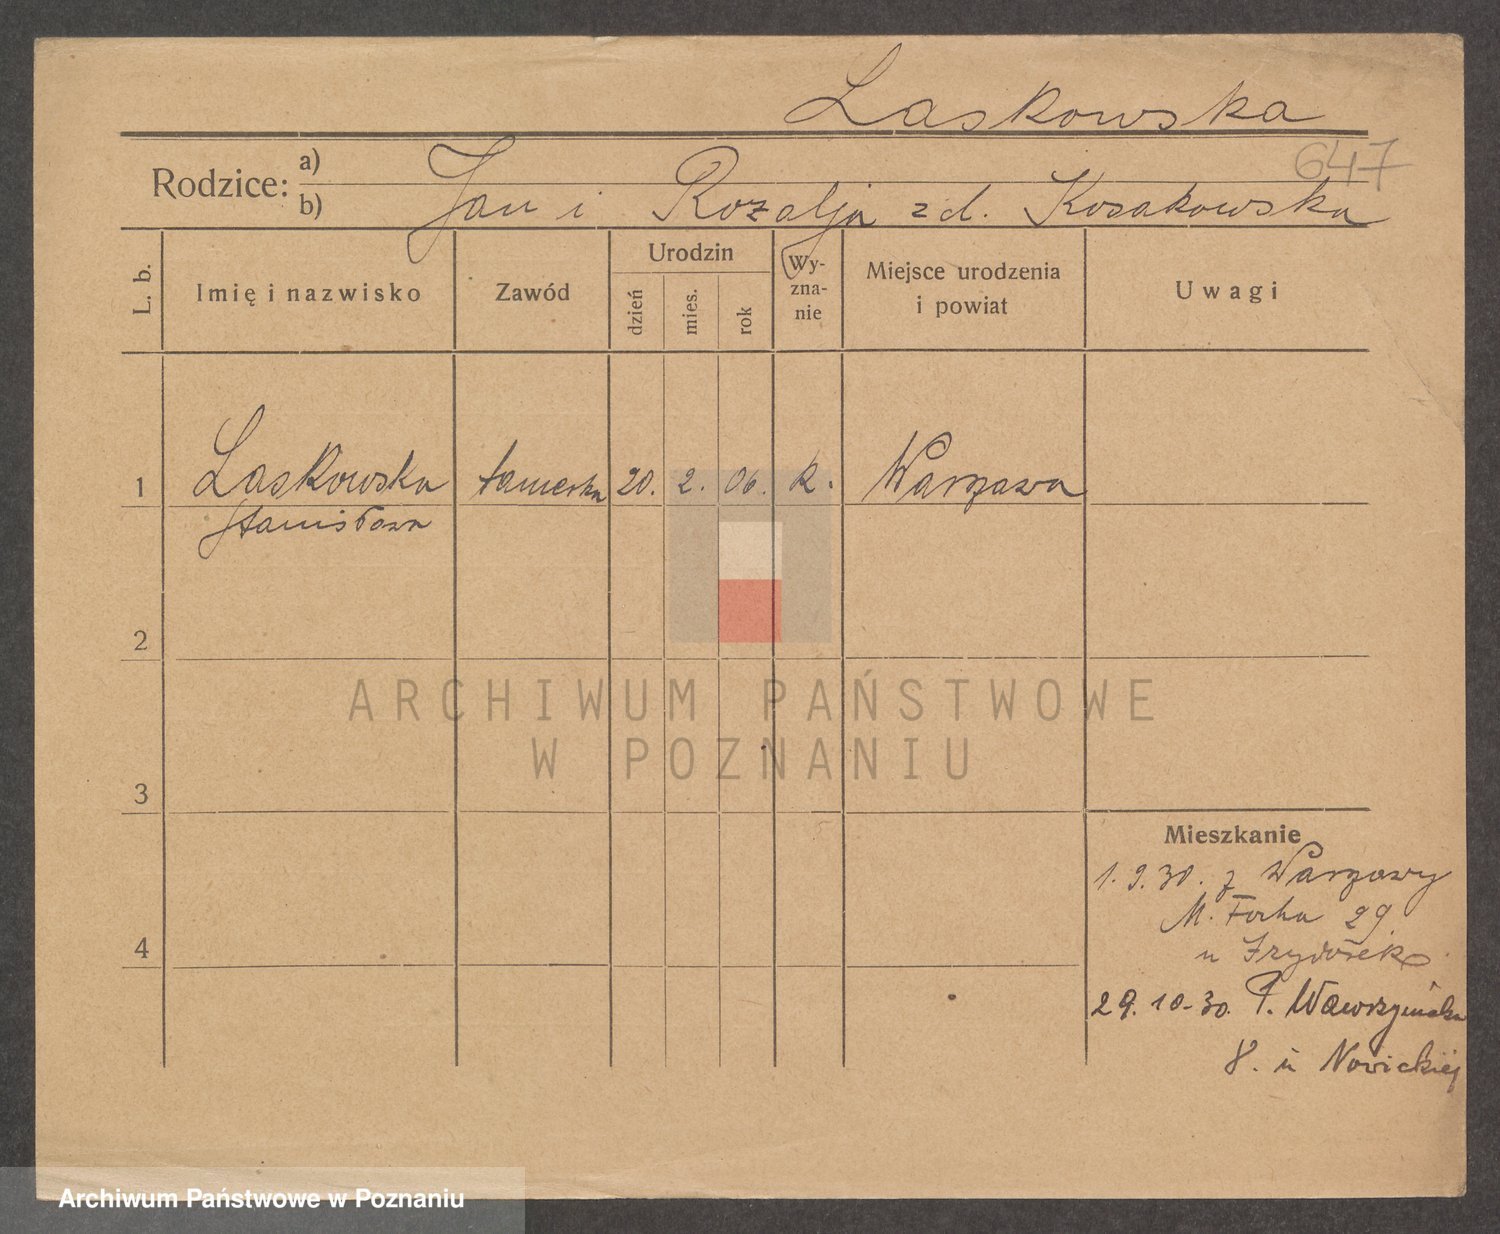 Laskowska
647
Rodzice: a)
b) Jan i Rozalja z d. Kosakowska
L. b.
Imię i nazwisko
Zawód
Urodzin
dzień
mies.
rok
Wy-
zna-
nie
Miejsce urodzenia
i powiat
Uwagi
1 Laskowska 20. 2. 06. k. Warszawa
Stanisława
2
3
4
Mieszkanie
1.9.30. z Warszawy
M. Focha 29
u
29.10-30. P. Wawrzyniaka
8. u Nowickiej
ARCHIWUM PAŃSTWOWE
W POZNANIU
Archiwum Państwowe w Poznaniu